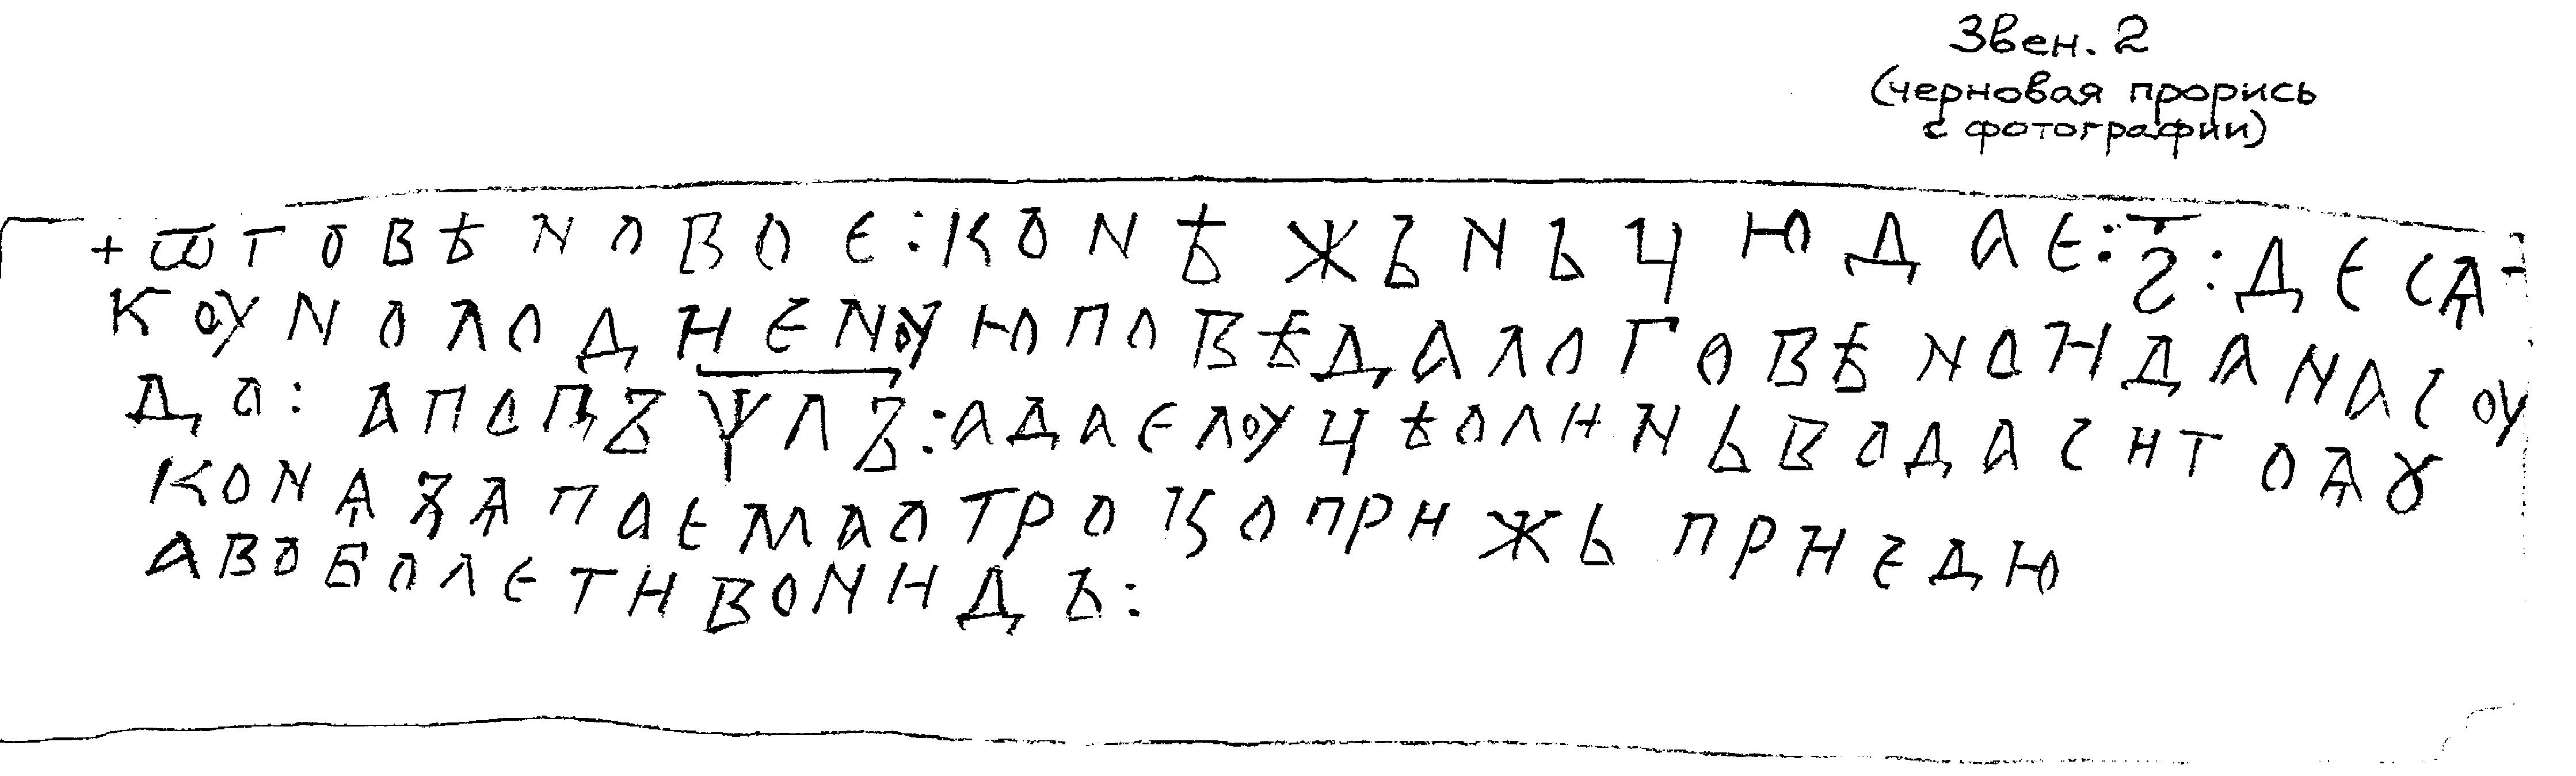 Звен. 2
(черновая прорись
с фотографии)
+ ѿ говѣновоє : ко нѣжьньцю дає : ꙅ҃ : десѧ-
коу нолодиєноую повѣдало говѣно и дана соу
до : а попъ ѱлъ : а даєлоучѣ олинь вода с итоѧ ꙋ
конѧ ꙁѧ паємаотроцо прижь приєдю
а во болєти воиндъ :